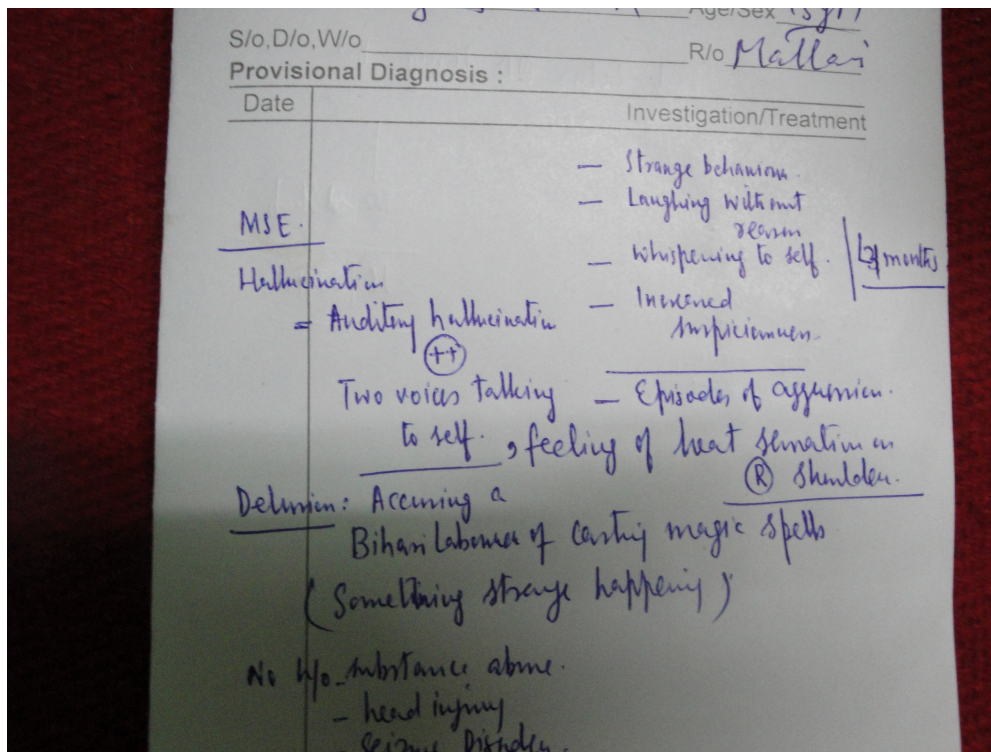 Age/Sex
S/o,D/o,W/o R/o Mattari
Provisional Diagnosis :
Date Investigation/Treatment
— Strange behaviour.
— Laughing without
reason
— Whispering to self.
— Increased
suspiciousness.
months
MSE.
Hallucination
= Auditory hallucination
(++)
Two voices talking
to self.
— Episodes of aggression.
, feeling of heat sensation in
(R) shoulder.
Delusion: Accusing a
Bihari Labourer of casting magic spells
(Something strange happening)
No h/o - substance abuse.
- head injury
- Seizure Disorder.